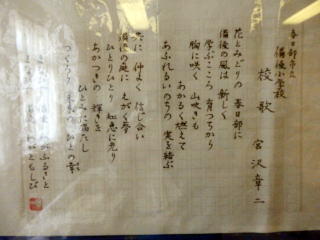 春日部市立
備後小学校
校歌
宮沢章二
花とみどりの 春日部に
備後の風は 新しく
学ぶこころ 育つちから
胸に咲く 山吹きも
あかるく燃えて
あふれるいのちの 実を結ぶ
共に 仲よく 信じ合い
備後の庭に えがく夢
ひとりひとり 知恵に光り
あかつきの 輝きを
ひとみに満たし
つくろう 未来の
ふるさと
ともしび